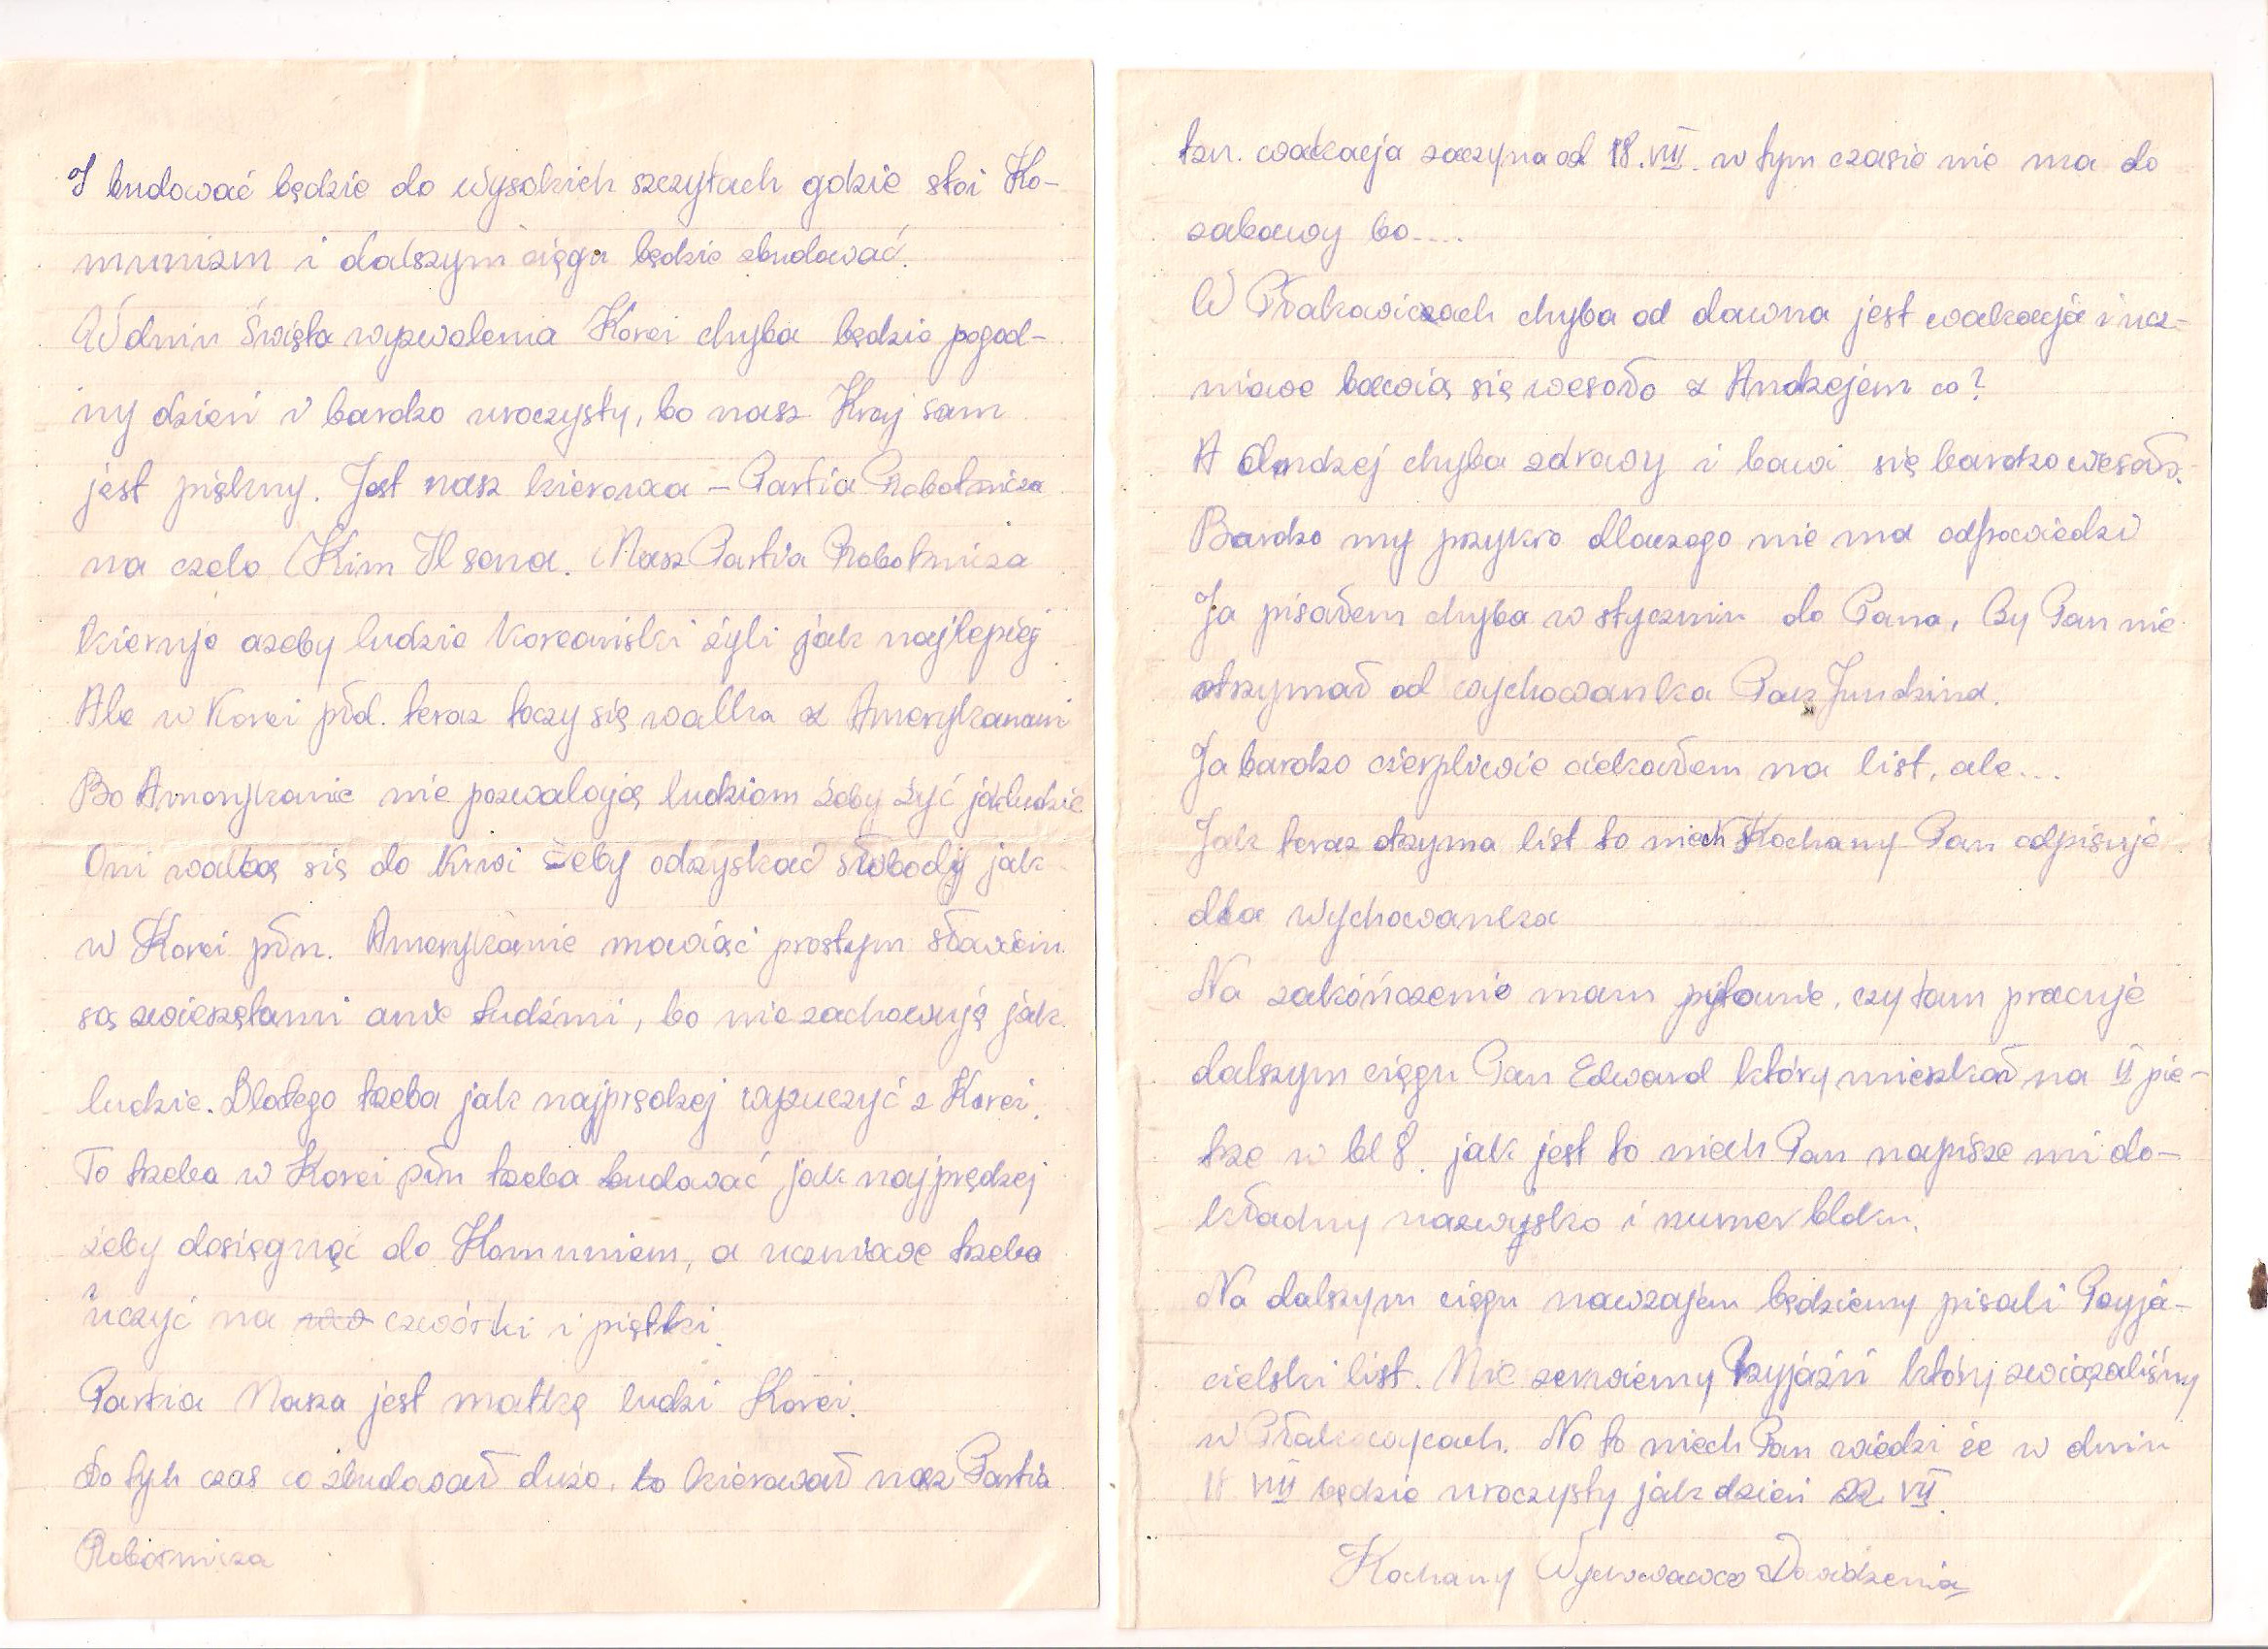 I budować będzie do wysokich szczytach gdzie stoi Ko-
munizm i dalszym ciągu będzie zbudować.
W dniu Święta wyzwolenia Korei chyba będzie pogod-
ny dzień i bardzo uroczysty, bo nasz Kraj sam
jest piękny. Jest nasz kierowca – Partia Robotnicza
na czele Kim Il sena. Nasz Partia Robotnicza
kieruje ażeby ludzie Koreański żyli jak najlepiej
Ale w Korei płd. teraz toczy się walka z Amerykanami
Bo Amerykanie nie pozwalają ludziom żeby żyć jak ludzie
Oni walbą się do Krwi żeby odzyskać słobody jak
w Korei płn. Amerykanie mówiąć prostym słowiem
są zwierzętami anie ludźmi, bo nie zachowują jak
ludzie. Dlatego trzeba jak najprędzej wyzuczyć z Korei.
To trzeba w Korei płn trzeba budować jak najprędzej
żeby dosięgnąć do Komuniem, a uczniowe trzeba
uczyć na czwórki i piątki.
Partia Nasza jest matką ludzi Korei.
Do tych czas co zbudował dużo, to kierował nasz Partia
Robotnicza
tzn. wakacja zaczyna od 18.VIII. w tym czasie nie ma do
zabawy bo....
W Płakowiczach chyba od dawna jest wakacja i ucz-
niowe bawią się wesoło z Andzejem co?
A Andzej chyba zdrowy i bawi się bardzo wesoło.
Bardzo my przykro dlaczego nie ma odpowiedzi
Ja pisałem chyba w styczniu do Pana, Czy Pan nie
otrzymał od wychowanka Pak Jundzina.
Ja bardzo cierpliwie ciekałem na list, ale...
Jak teraz otrzyma list to niech Kochany Pan odpisuje
dla wychowanka
Na zakończenie mam pytanie, czy tam pracuje
dalszym ciągu Pan Edward który mieszkał na II pie-
trze w bl 8. jak jest to niech Pan napisze mi do-
kładny nazwysko i numer bloku.
Na dalszym ciągu nawzajem będziemy pisali Przyja-
cielski list. Nie zerwiemy Przyjaźń którz związaliśmy
w Płakowycach. No to niech Pan wiedzi że w dniu
18 VIII będzie uroczysty jak dzień 22. VII.
Kochany Wychowawco Dowidzenia